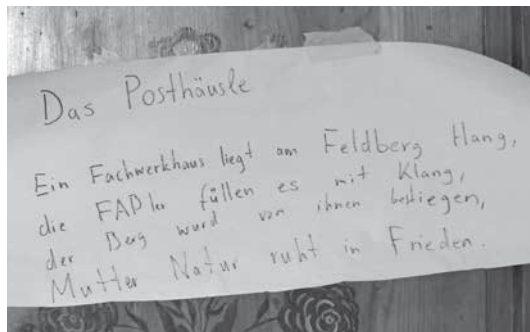 Das Posthäusle
Ein Fachwerkhaus liegt am Feldberg Hang,
die FAPler füllen es mit Klang,
der Berg wurd von ihnen bestiegen,
Mutter Natur ruht in Frieden.